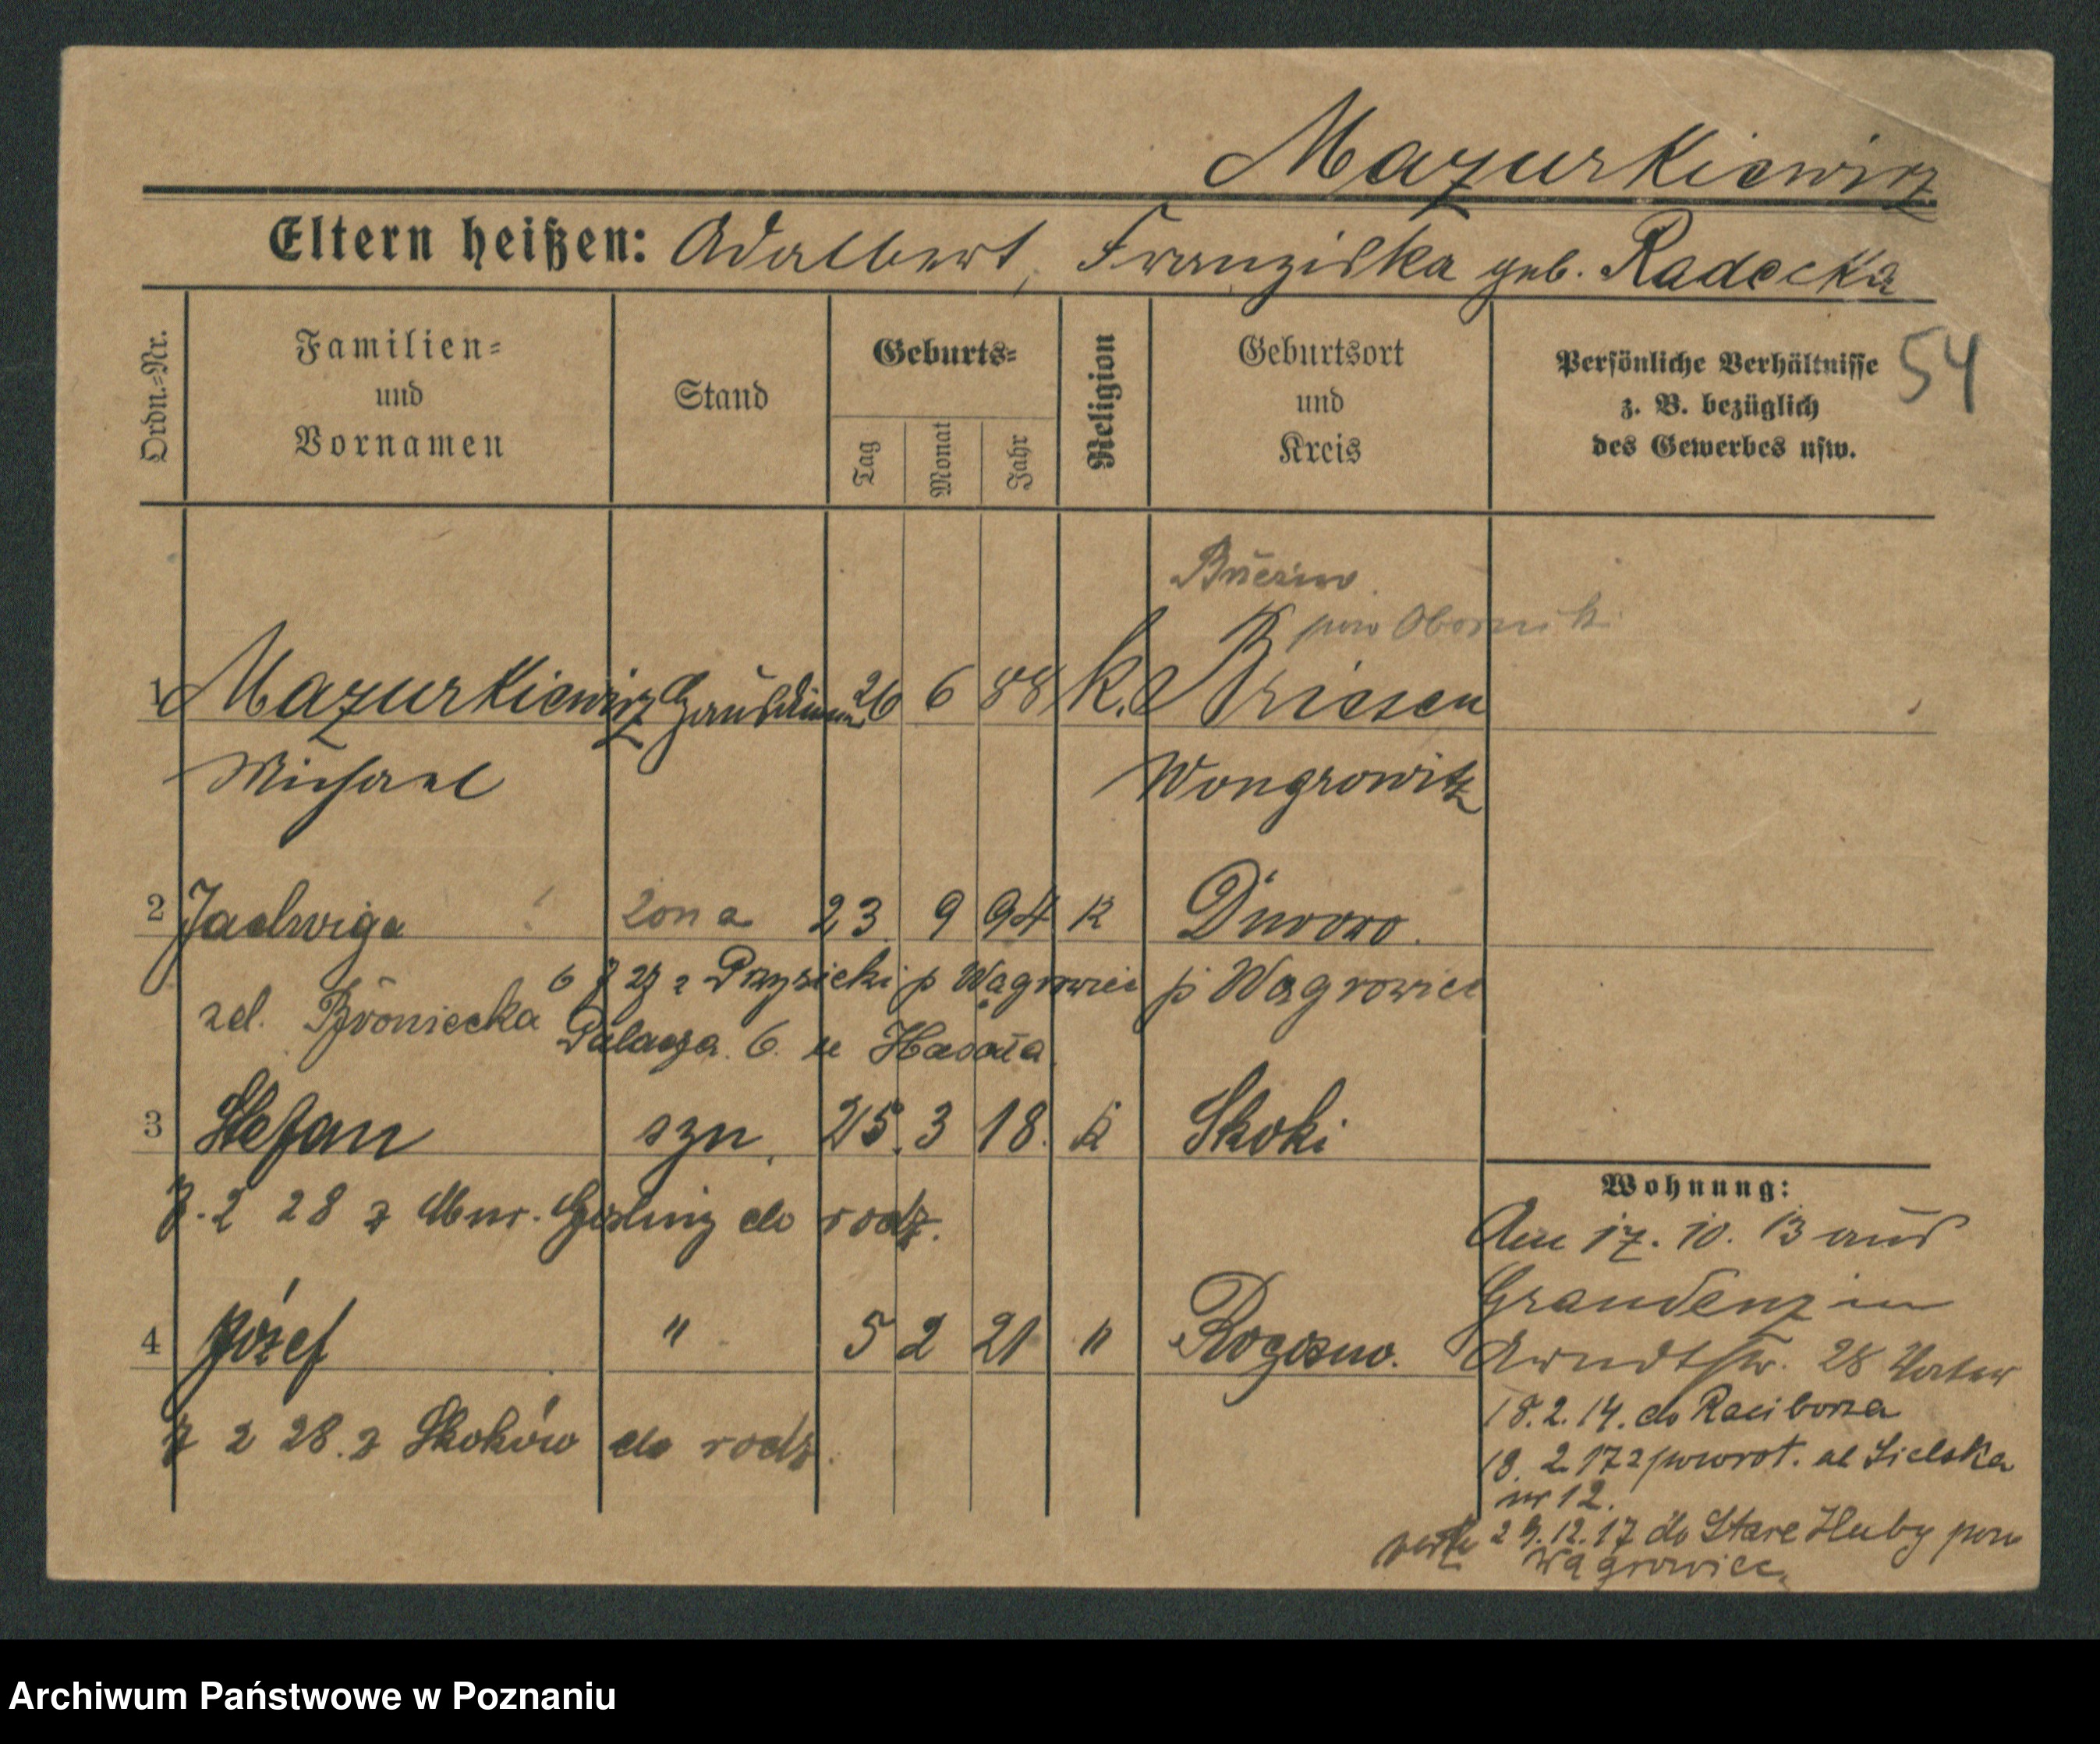 Mazurkiewicz
Eltern heißen: Adalbert, Franziska geb. Radecka
Ordn.-Nr.
Familien- und Vornamen
Stand
Geburts-
Tag
Monat
Jahr
Religion
Geburtsort und Kreis
Persönliche Verhältnisse z. B. bezüglich des Gewerbes usw.
54
pow Obornik
1 Mazurkiewicz 26 6 88 k. Briesen
Michael Wongrowitz
2 Jadwiga żona 23 9 94 k
6 7 27 z Przysieki p Wągrowiec p Wągrowiec
zd. Broniecka
Palacza 6. u
3 Stefan syn. 25. 3 18. k Skoki
7. 2 28 z do rodz.
4 Józef " 5 2 21 " Rogoźno.
7 2 28. z Skoków do rodz.
Wohnung:
Am 17. 10. 13 aus
Graudenz in
Arndtstr. 28
18. 2. 14. do Raciborza
18. 2. 17 z powrot. ul Sielska
nr 12.
verte 29. 12. 17 do Stare Huby pow
Wągrowiec.
Archiwum Państwowe w Poznaniu